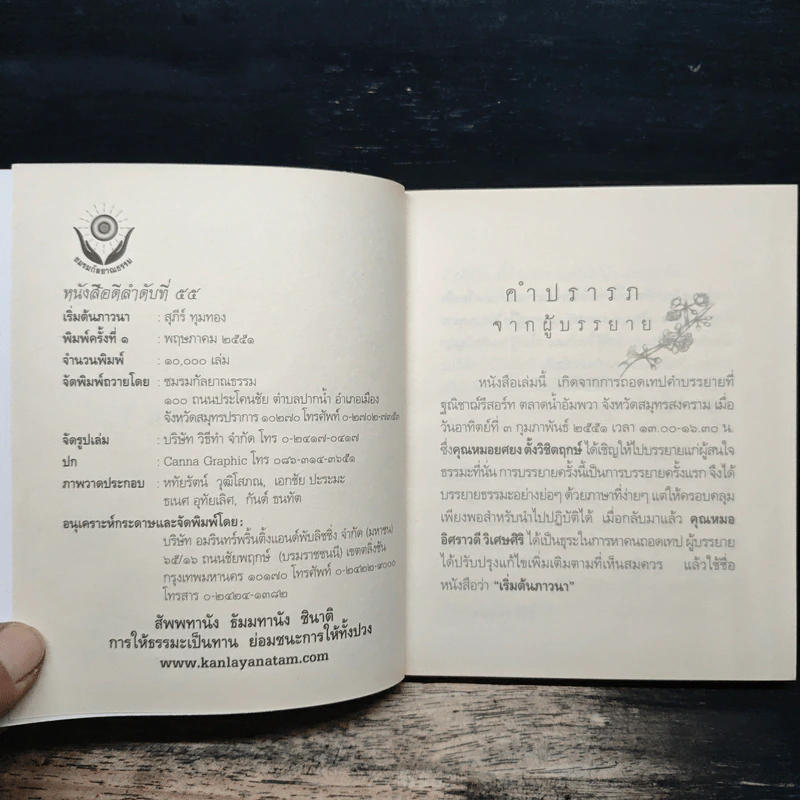 ชมรมกัลยาณธรรม
หนังสือดีลำดับที่ ๕๕
เริ่มต้นภาวนา : สุภีร์ ทุมทอง
พิมพ์ครั้งที่ ๑ : พฤษภาคม ๒๕๕๑
จำนวนพิมพ์ : ๑๐,๐๐๐ เล่ม
จัดพิมพ์ถวายโดย : ชมรมกัลยาณธรรม
๑๐๐ ถนนประโคนชัย ตำบลปากน้ำ อำเภอเมือง
จังหวัดสมุทรปราการ ๑๐๒๗๐ โทรศัพท์ ๐-๒๗๐๒-๗๓๕๓
จัดรูปเล่ม : บริษัท วิธีทำ จำกัด โทร ๐-๒๔๑๗-๐๔๑๗
ปก : Canna Graphic โทร ๐๘๖-๓๑๔-๓๖๕๑
ภาพวาดประกอบ : หทัยรัตน์ วุฒิโสภณ, เอกชัย ปะระมะ
ธเนศ อุทัยเลิศ, กันต์ ธนทัต
อนุเคราะห์กระดาษและจัดพิมพ์โดย :
บริษัท อมรินทร์พริ้นติ้งแอนด์พับลิชชิ่ง จำกัด (มหาชน)
๖๕/๑๖ ถนนชัยพฤกษ์ (บรมราชชนนี) เขตตลิ่งชัน
กรุงเทพมหานคร ๑๐๑๗๐ โทรศัพท์ ๐-๒๔๒๒-๙๐๐๐
โทรสาร ๐-๒๔๒๔-๑๓๘๒
สัพพทานัง ธัมมทานัง ชินาติ
การให้ธรรมะเป็นทาน ย่อมชนะการให้ทั้งปวง
www.kanlayanatam.com
คำปรารภ
จากผู้บรรยาย
หนังสือเล่มนี้ เกิดจากการถอดเทปคำบรรยายที่
ฐณิชาฌ์รีสอร์ท ตลาดน้ำอัมพวา จังหวัดสมุทรสงคราม เมื่อ
วันอาทิตย์ที่ ๓ กุมภาพันธ์ ๒๕๕๑ เวลา ๑๓.๐๐-๑๖.๓๐ น.
ซึ่งคุณหมอยศยง ตั้งวิชิตฤกษ์ ได้เชิญให้ไปบรรยายแก่ผู้สนใจ
ธรรมะที่นั่น การบรรยายครั้งนี้เป็นการบรรยายครั้งแรก จึงได้
บรรยายธรรมะอย่างย่อๆ ด้วยภาษาที่ง่ายๆ แต่ให้ครอบคลุม
เพียงพอสำหรับนำไปปฏิบัติได้ เมื่อกลับมาแล้ว คุณหมอ
อิศราวดี วิเศษศิริ ได้เป็นธุระในการหาคนถอดเทป ผู้บรรยาย
ได้ปรับปรุงแก้ไขเพิ่มเติมตามที่เห็นสมควร แล้วใช้ชื่อ
หนังสือว่า “เริ่มต้นภาวนา”